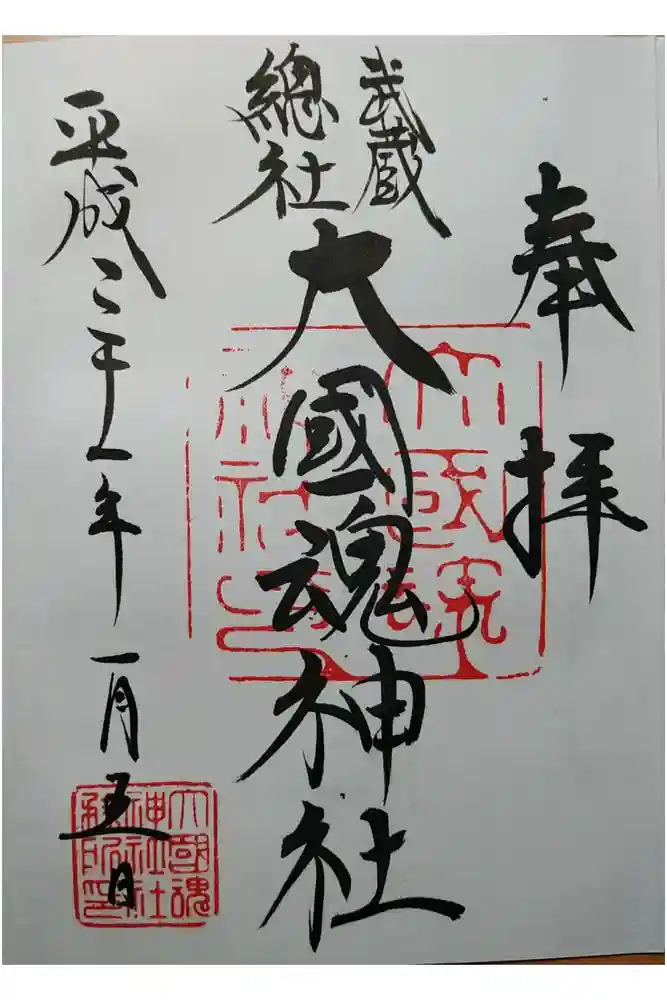 奉拝
武蔵
總社
大國魂神社
平成二十一年一月五日
大國魂
神社社
務所印